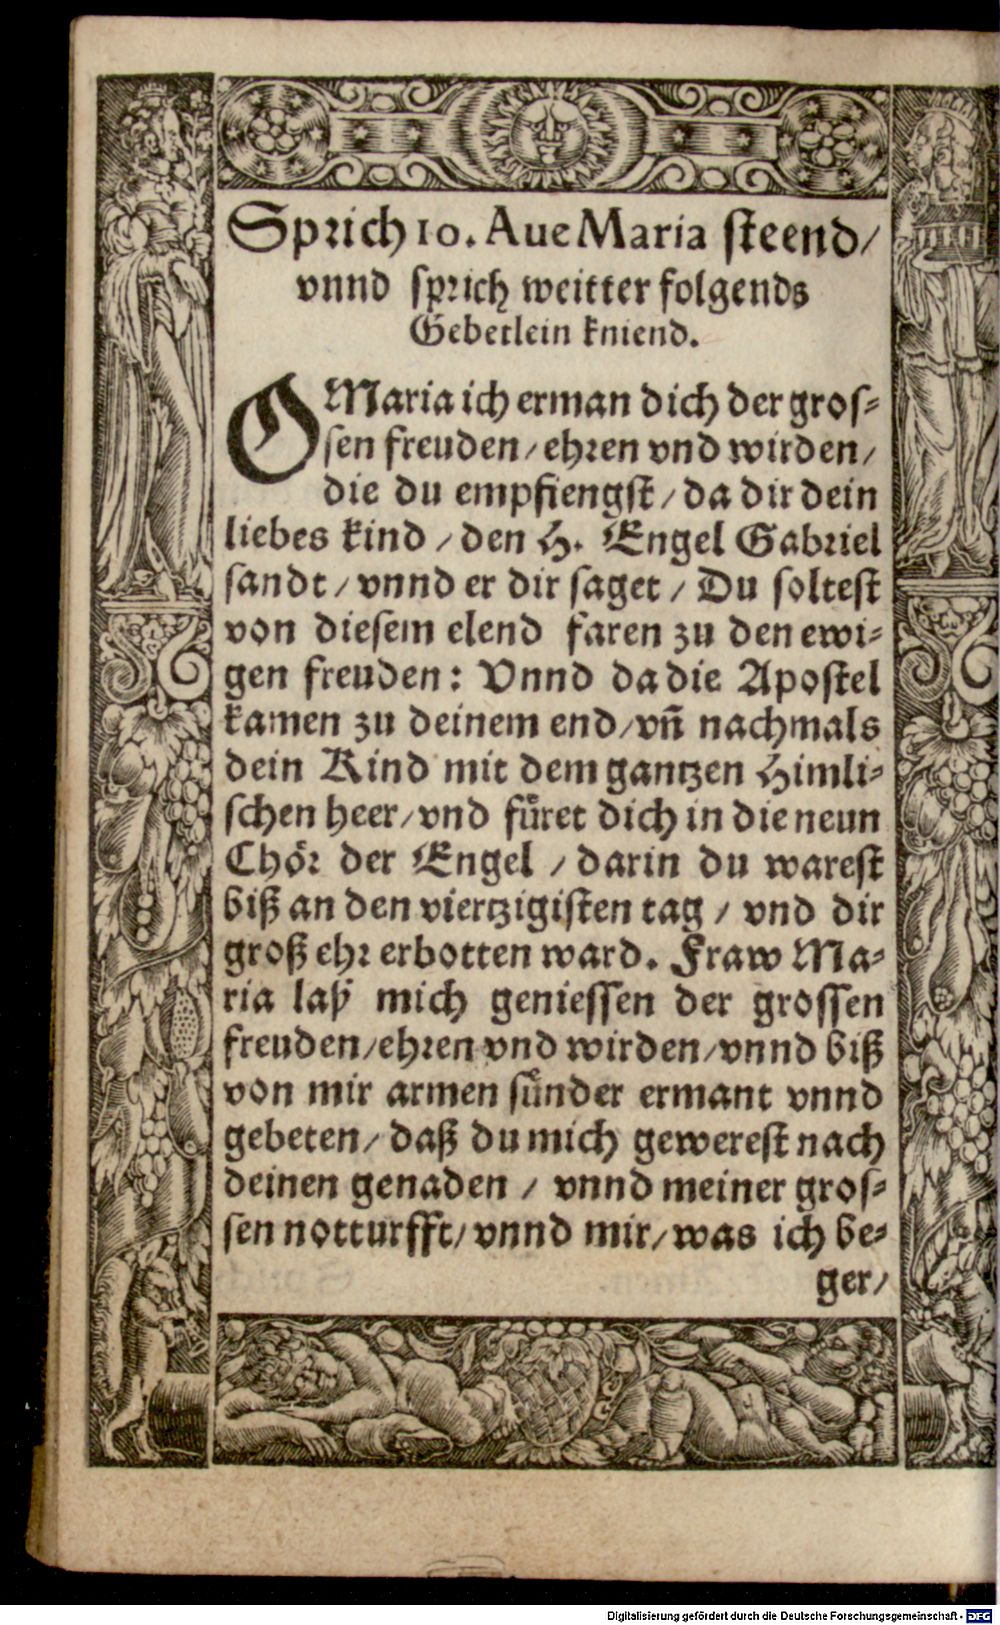 Sprich 10. Aue Maria steend/
vnnd sprich weitter folgends
Gebetlein kniend.
O Maria ich erman dich der gros⸗
sen freuden/ ehren vnd wirden/
die du empfiengst/ da dir dein
liebes kind/ den H. Engel Gabriel
sandt/ vnnd er dir saget/ Du soltest
von diesem elend faren zu den ewi⸗
gen freuden: Vnnd da die Apostel
kamen zu deinem end/ vñ nachmals
dein Kind mit dem gantzen Himli⸗
schen heer/ vnd fuͤret dich in die neun
Choͤr der Engel/ darin du warest
biß an den viertzigisten tag/ vnd dir
groß ehr erbotten ward. Fraw Ma⸗
ria laß mich geniessen der grossen
freuden/ ehren vnd wirden/ vnnd biß
von mir armen suͤnder ermant vnnd
gebeten/ daß du mich gewerest nach
deinen genaden/ vnnd meiner gros⸗
sen notturfft/ vnnd mir/ was ich be⸗
ger/
Digitalisierung gefördert durch die Deutsche Forschungsgemeinschaft - DFG